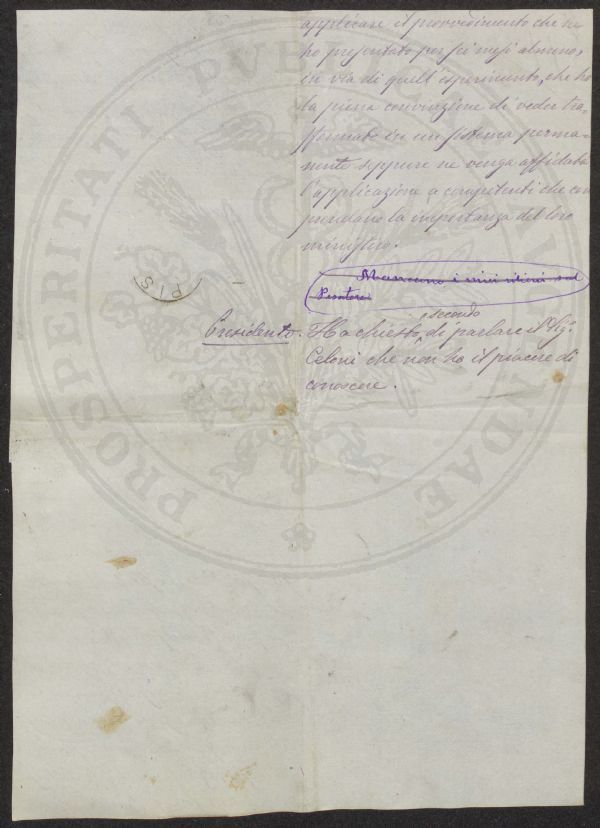 applicare il provvedimento che ne
ho presentato per sei mesi almeno,
in via di quell'esperimento, che ho
la piena convinzione di veder tra=
sformato in un sistema perma=
nente eppure ne venga affidata
l'applicazione a competenti che com
prendano la importanza del loro
ministero.
Mancano i miei rilievi sul
secondo
Presidente. Ha chiesto di parlare il Sigr.
Celoni che non ho il piacere di
conoscere.
PROSPERITATI PUBLICAE AUGENDAE
PIS